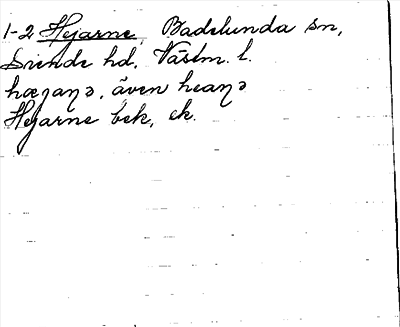 1-2 Hejarne, Badelunda sn,
Siende hd, Västm. l.
hæȷaɳə, även heaɳə
Hejarne bek, ek.